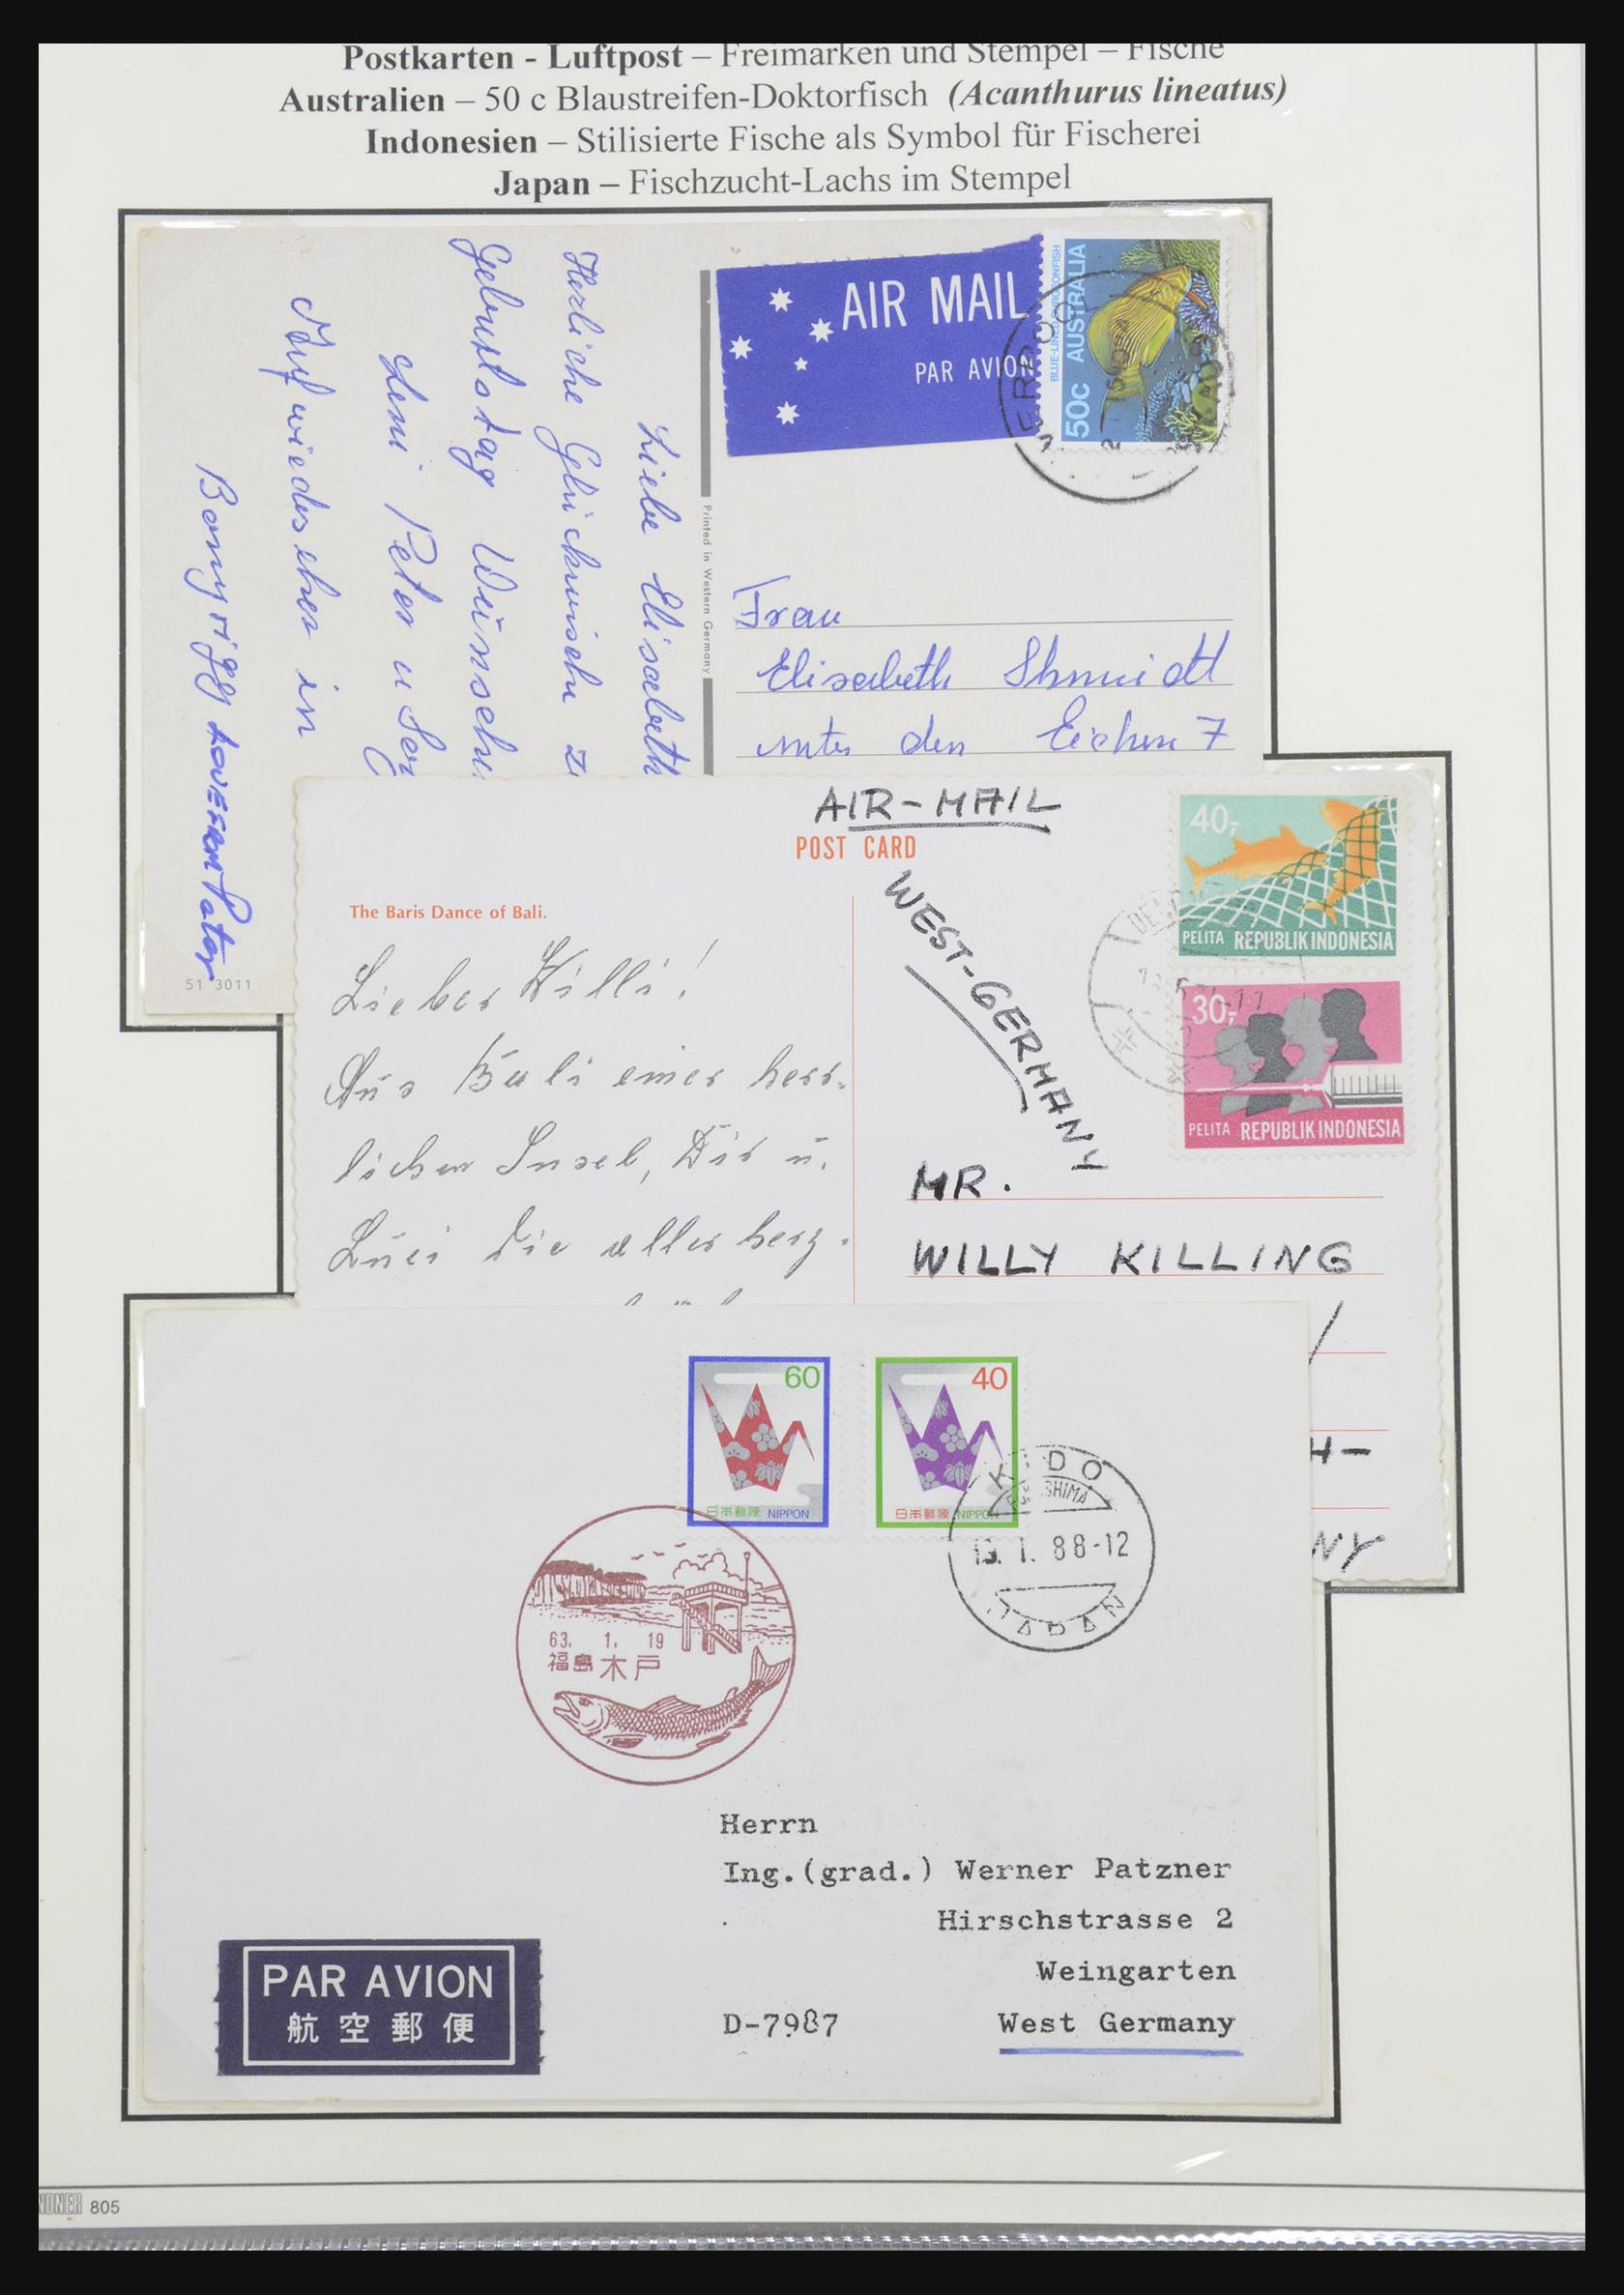 Postkarten - Luftpost – Freimarken und Stempel – Fische
Australien – 50 c Blaustreifen-Doktorfisch (Acanthurus lineatus)
Indonesien – Stilisierte Fische als Symbol für Fischerei
Japan – Fischzucht-Lachs im Stempel
AIR MAIL
PAR AVION
50c AUSTRALIA
Liebe Elisabeth
Herliche Glückwünsche
Geburtstag Wünschen
Peter u
Auf wiedersehen in
Pater
51 3011
Printed in Western Germany
Frau
Elisabeth Shmidt
unter den Eichen 7
AIR-MAIL
POST CARD
WEST-GERMANY
The Baris Dance of Bali.
Lieber Willi!
Aus Bali einer herr-
lichen Insel, Dir u.
Luci die aller herz-
40,-
PELITA REPUBLIK INDONESIA
30,-
PELITA REPUBLIK INDONESIA
MR.
WILLY KILLING
H-
NY
60
日本郵便 NIPPON
40
日本郵便 NIPPON
KIDO
13. 1. 88-12
JAPAN
63. 1. 19
福島 木戸
Herrn
Ing.(grad.) Werner Patzner
Hirschstrasse 2
Weingarten
D-7987 West Germany
PAR AVION
航空郵便
805